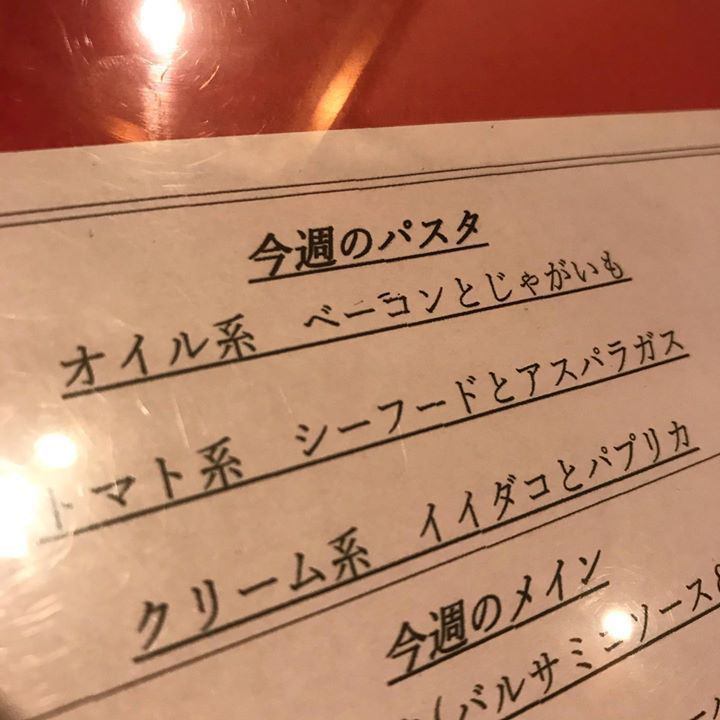 今週のパスタ
オイル系 ベーコンとじゃがいも
トマト系 シーフードとアスパラガス
クリーム系 イイダコとパプリカ
今週のメイン
(バルサミコソース